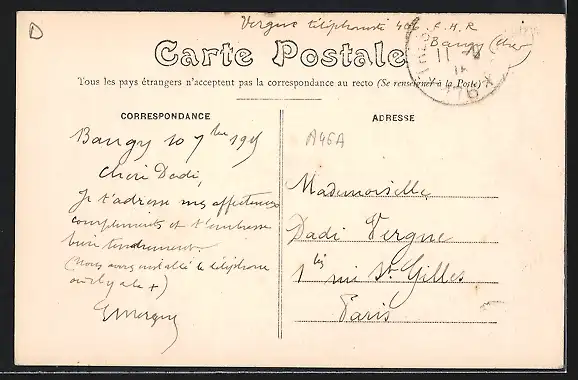 D
Vergne téléphoniste 406 R.A.R
Baugy (Cher)
Carte Postale
Tous les pays étrangers n'acceptent pas la correspondance au recto (Se renseigner à la Poste)
CORRESPONDANCE
ADRESSE
A46A
Baugy 10 7bre 1915
Cheri Dadi,
Je t'adresse mes affectueux
compliments et t'embrasse
bien tendrement.
(Nous avons installé le téléphone
où il y a le +)
EVergne
Mademoiselle
Dadi Vergne
1bis rue St. Gilles
Paris